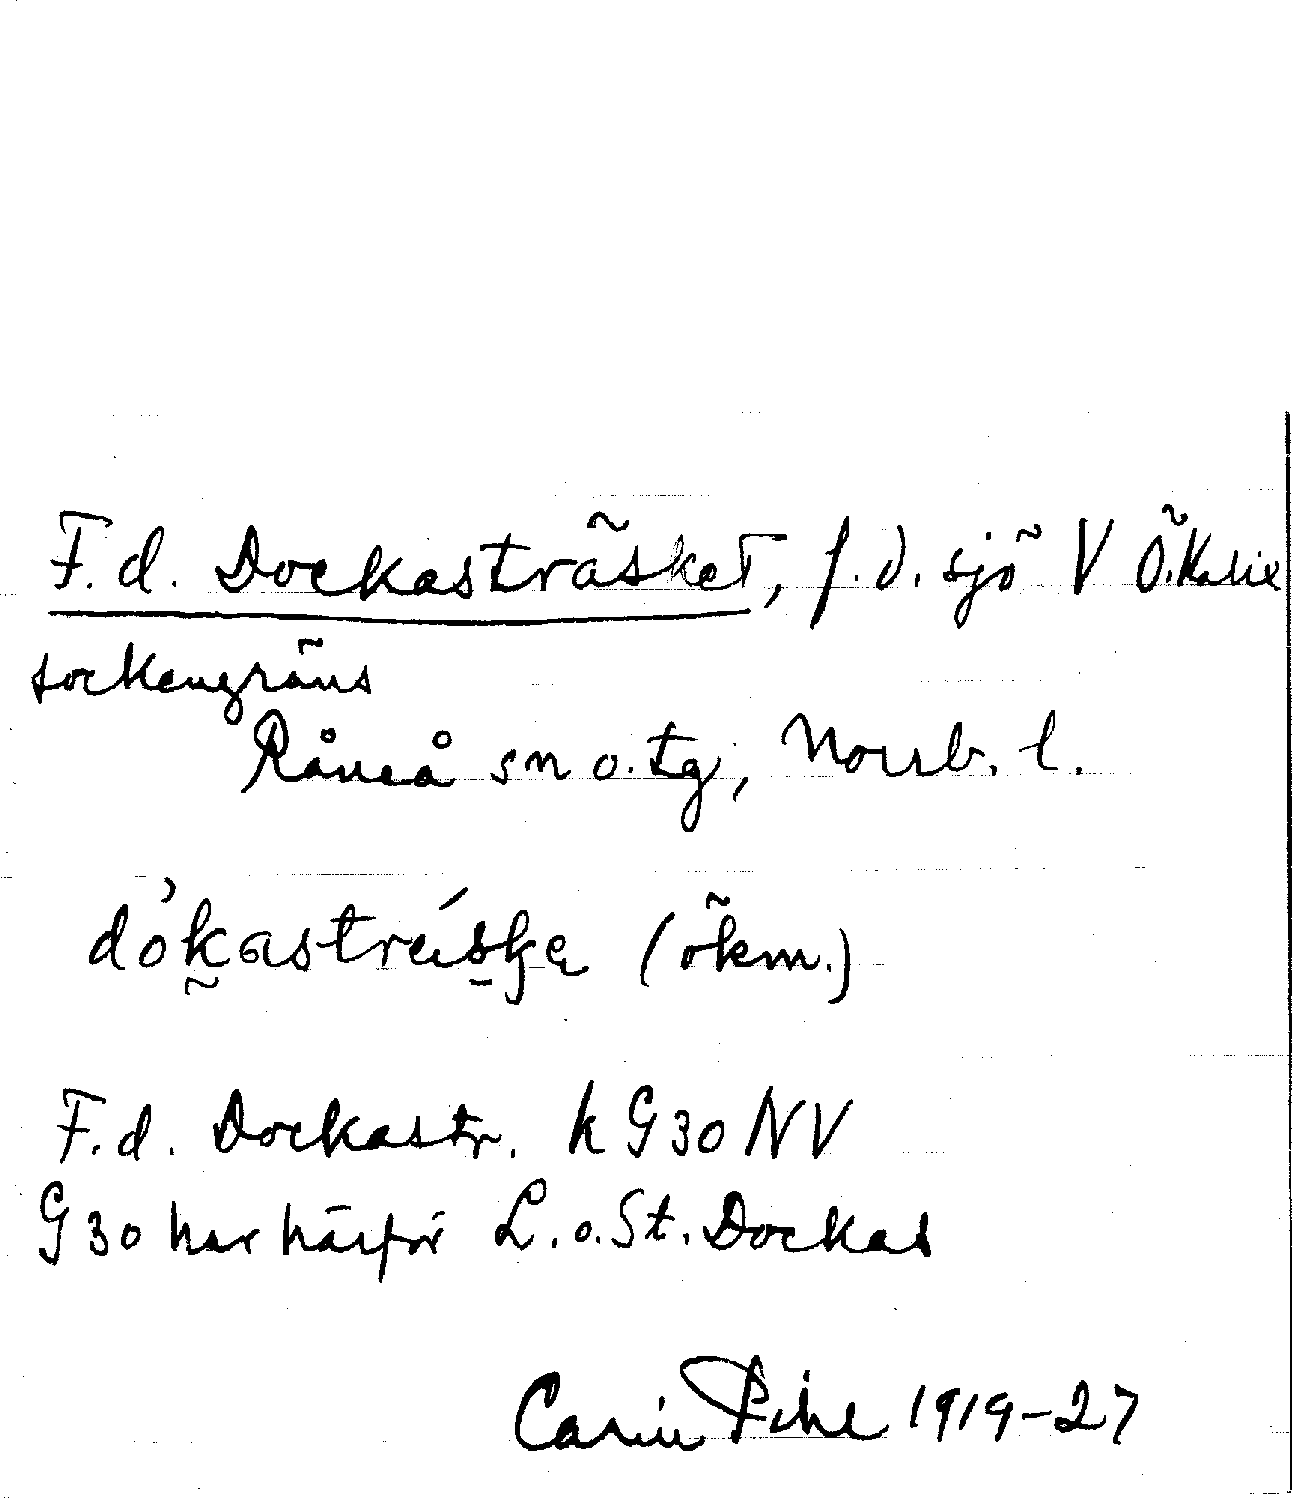 F.d. Dockasträsket, f.d. sjö V Ö.Kalix
sockengräns
Råneå sn o. tg, Norrb. l.
dókasträ́ske (ökm.)
F.d. Dockastr. k G30NV
G30 har härför L.o.St. Dockas
Carin Pihl 1919-27